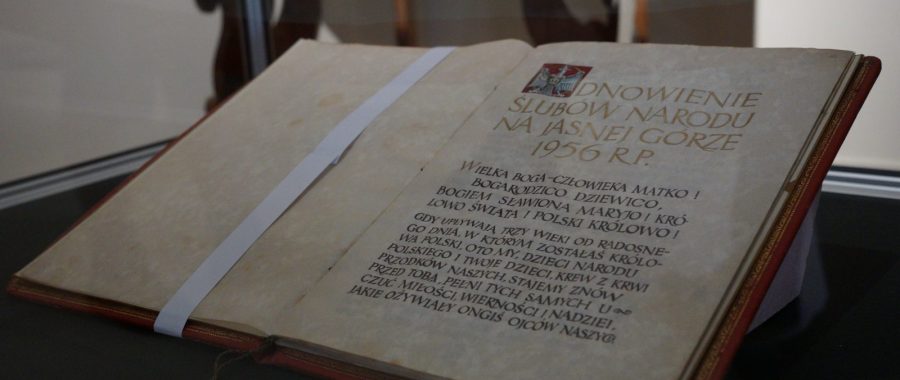 ODNOWIENIE
ŚLUBÓW NARODU
NA JASNEJ GÓRZE
1956 R.P.
WIELKA BOGA-CZŁOWIEKA MATKO!
BOGARODZICO DZIEWICO,
BOGIEM SŁAWIONA MARYJO! KRÓ-
LOWO ŚWIATA I POLSKI KRÓLOWO!
GDY UPŁYWAJĄ TRZY WIEKI OD RADOSNE-
GO DNIA, W KTÓRYM ZOSTAŁAŚ KRÓLO-
WĄ POLSKI, OTO MY, DZIECI NARODU
POLSKIEGO I TWOJE DZIECI, KREW Z KRWI
PRZODKÓW NASZYCH, STAJEMY ZNÓW
PRZED TOBĄ, PEŁNI TYCH SAMYCH U-
CZUĆ MIŁOŚCI, WIERNOŚCI I NADZIEI,
JAKIE OŻYWIAŁY ONGIŚ OJCÓW NASZYCH.